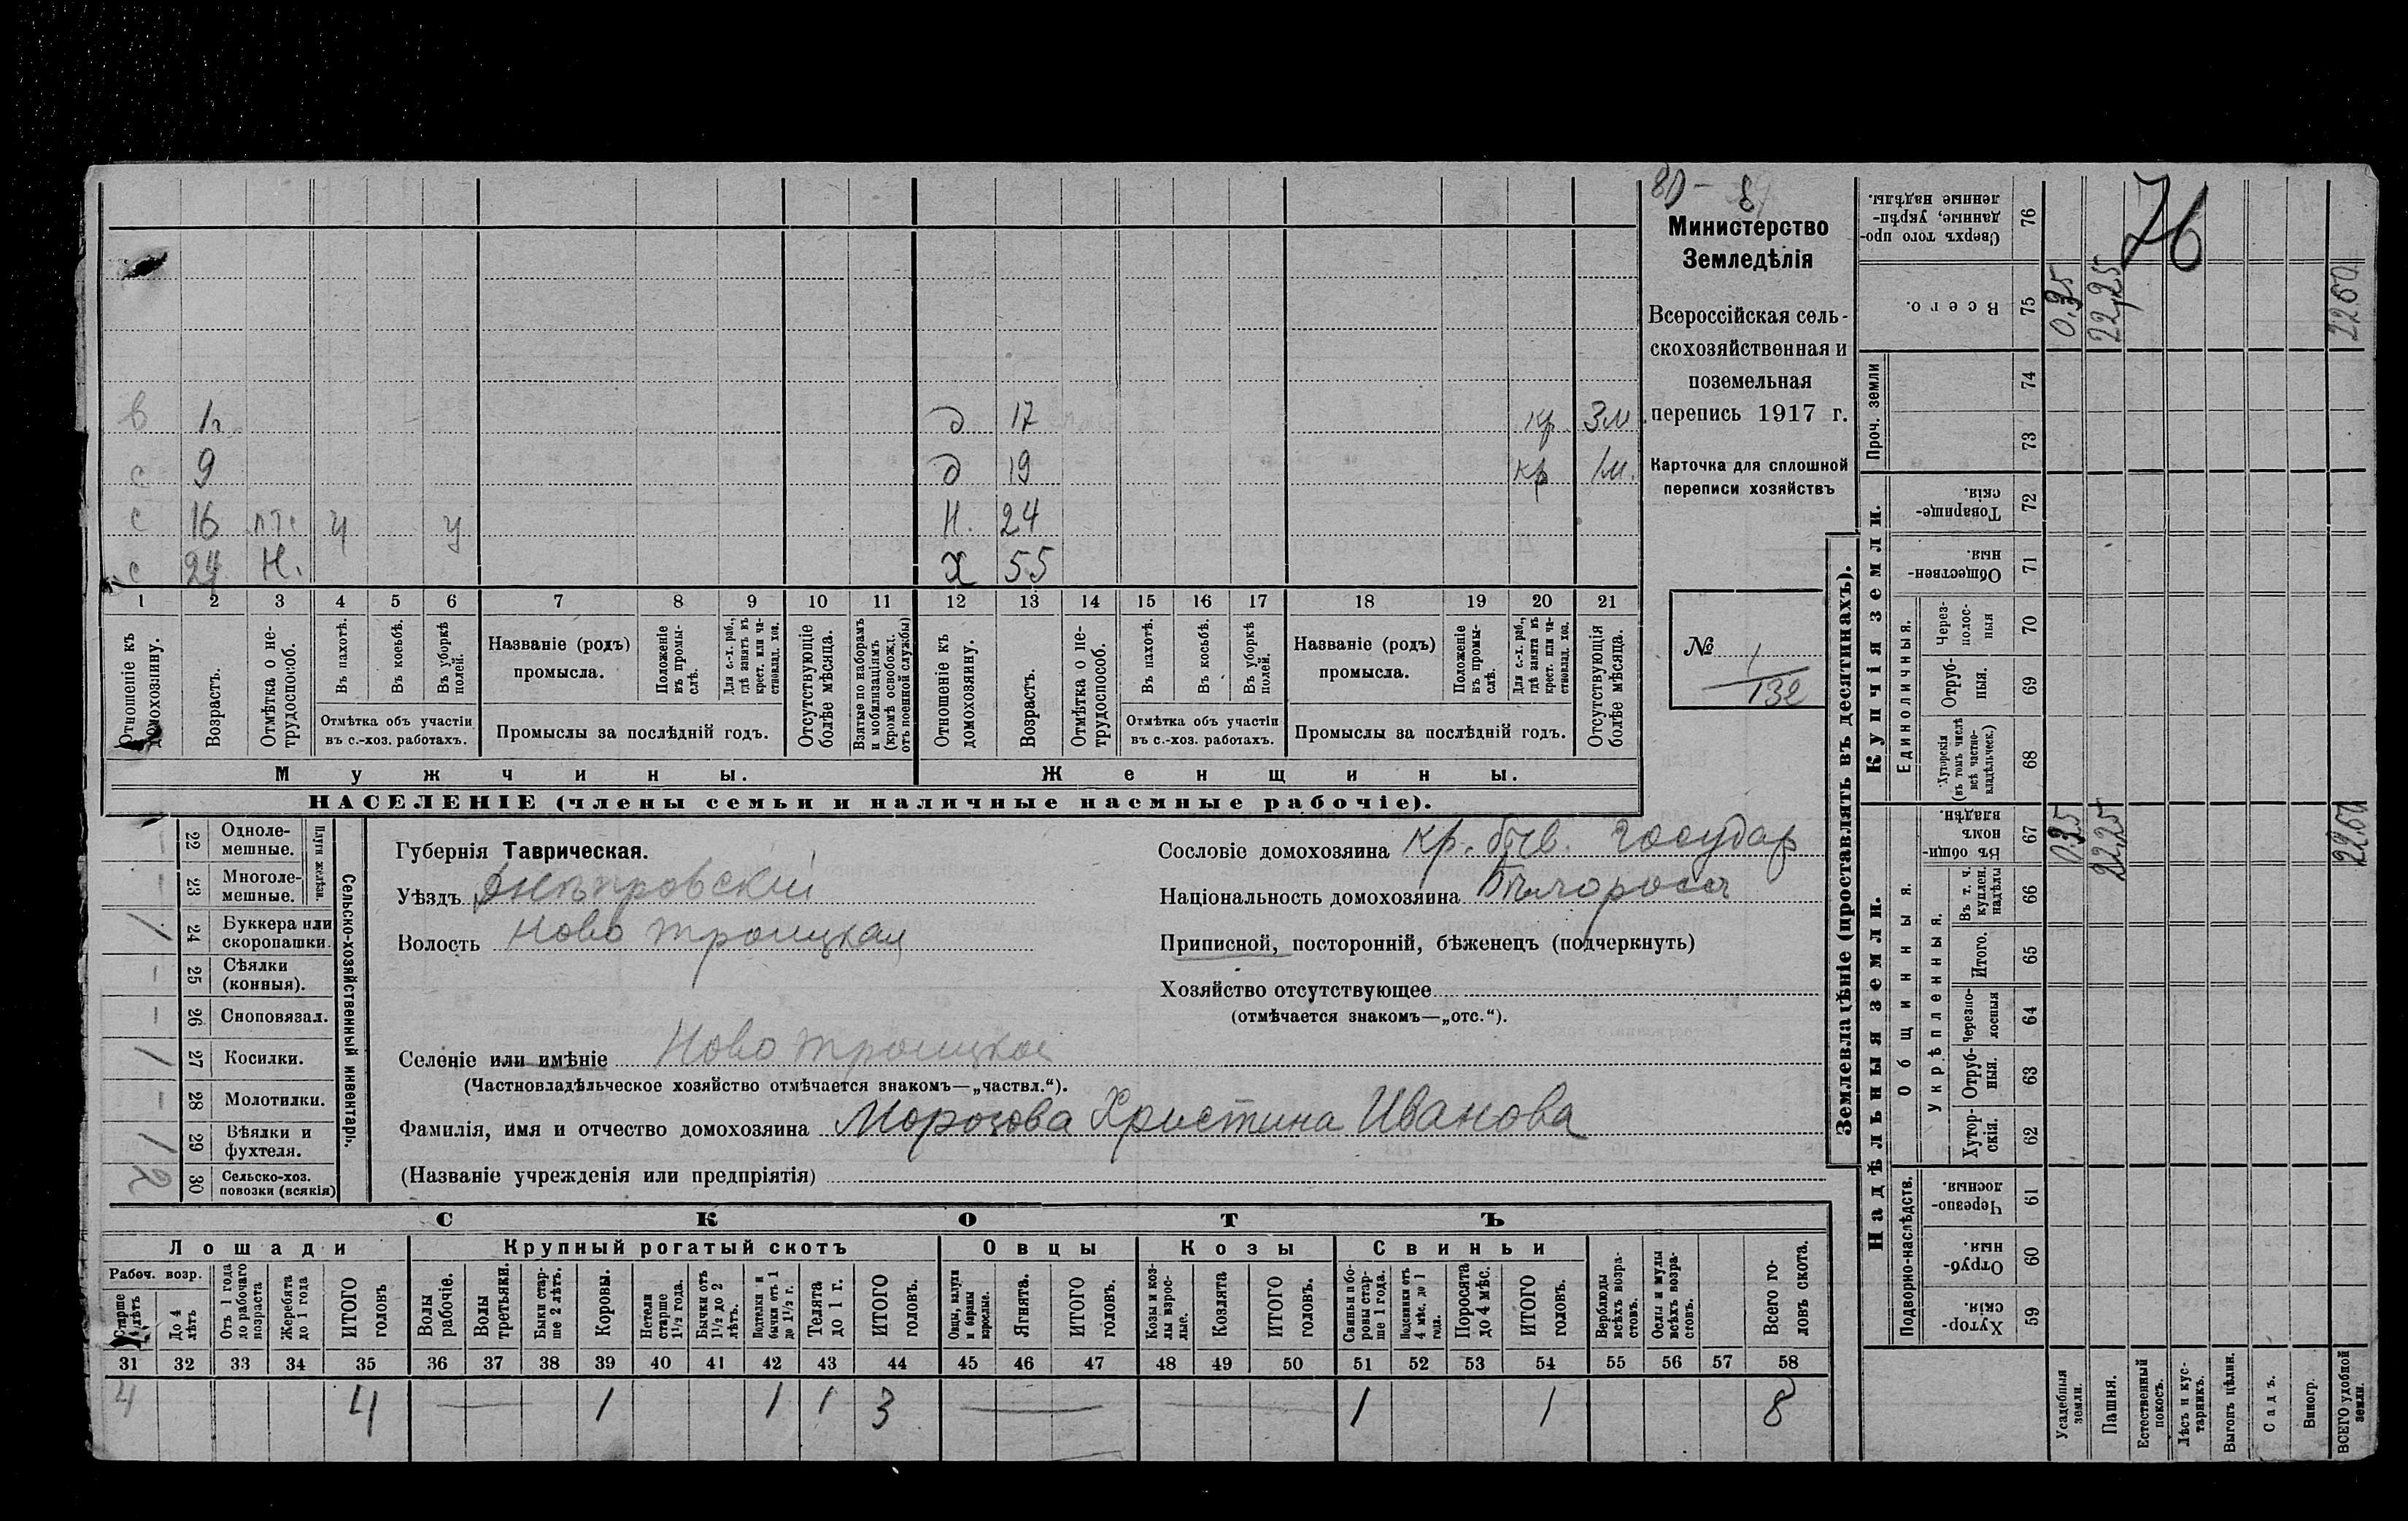 80-
76
Министерство
Земледѣлія
Всероссійская сель-
скохозяйственная и
поземельная
перепись 1917 г.
Карточка для сплошной
переписи хозяйствъ
№ 1/132
в 1 г. д 17 кр. 3м
с 9 д 19 кр 1м.
с 16 у у н. 24
с 24 н. х 55
1 2 3 4 5 6 7 8 9 10 11 12 13 14 15 16 17 18 19 20 21
Отношеніе къ домохозяину.
Возрастъ.
Отмѣтка о не-трудоспособ.
Въ пахотѣ.
Въ косьбѣ.
Въ уборкѣ полей.
Отмѣтка объ участіи
въ с.-хоз. работахъ.
Названіе (родъ)
промысла.
Положеніе въ промы-слѣ.
Для с.-х. раб., гдѣ занятъ въ крест. или ча-стновлад. хоз.
Промыслы за послѣдній годъ.
Отсутствующіе болѣе мѣсяца.
Взятые по наборамъ и мобилизаціямъ (кромѣ освобожд. отъ военной службы)
Отношеніе къ домохозяину.
Возрастъ.
Отмѣтка о не-трудоспособ.
Въ пахотѣ.
Въ косьбѣ.
Въ уборкѣ полей.
Отмѣтка объ участіи
въ с.-хоз. работахъ.
Названіе (родъ)
промысла.
Положеніе въ промы-слѣ.
Для с.-х. раб., гдѣ занята въ крест. или ча-стновлад. хоз.
Промыслы за послѣдній годъ.
Отсутствующія болѣе мѣсяца.
Мужчины.
Женщины.
НАСЕЛЕНІЕ (члены семьи и наличные наемные рабочіе).
Сельско-хозяйственный инвентарь.
Плуги желѣзн.
- 22 Одноле-мешные.
- 23 Многоле-мешные.
1 24 Буккера или скоропашки.
- 25 Сѣялки (конныя).
- 26 Сноповязал.
1 27 Косилки.
- 28 Молотилки.
1 29 Вѣялки и фухтеля.
2 30 Сельско-хоз. повозки (всякія)
Губернія Таврическая.
Уѣздъ Днѣпровскій
Волость Ново Троицкая
Селеніе или имѣніе Ново Троицкое
(Частновладѣльческое хозяйство отмѣчается знакомъ—„частвл.“).
Фамилія, имя и отчество домохозяина Морозова Христина Иванова
(Названіе учрежденія или предпріятія)
Сословіе домохозяина кр. быв. государ
Національность домохозяина Бѣлоросс
Приписной, посторонній, бѣженецъ (подчеркнуть)
Хозяйство отсутствующее
(отмѣчается знакомъ—„отс.“).
СКОТЪ
Лошади Крупный рогатый скотъ Овцы Козы Свиньи
Рабоч. возр.
Старше 4 лѣтъ
До 4 лѣтъ
Отъ 1 года до рабочаго возраста
Жеребята до 1 года
ИТОГО головъ
Волы рабочіе.
Волы третьяки.
Быки стар-ше 2 лѣтъ.
Коровы.
Нетели старше 1½ года.
Бычки отъ 1½ до 2 лѣтъ.
Подтелки и бычки отъ 1 до 1½ г.
Телята до 1 г.
ИТОГО головъ.
Овцы, валухи и бараны взрослые.
Ягнята.
ИТОГО головъ.
Козы и коз-лы взрос-лые.
Козлята
ИТОГО головъ.
Свиньи и бо-ровы стар-ше 1 года.
Подсвинки отъ 4 мѣс. до 1 года.
Поросята до 4 мѣс.
ИТОГО головъ.
Верблюды всѣхъ возра-стовъ.
Ослы и мулы всѣхъ возра-стовъ.
Всего го-ловъ скота.
31 32 33 34 35 36 37 38 39 40 41 42 43 44 45 46 47 48 49 50 51 52 53 54 55 56 57 58
4 4 — 1 1 1 3 — — 1 1 8
Землевладѣніе (проставлять въ десятинахъ).
Надѣльныя земли.
Купчія земли.
Проч. земли
Подворно-наслѣдств.
Общинныя.
Укрѣпленныя.
Единоличныя.
Сверхъ того про-данные, укрѣп-ленные надѣлы. 76
Всего. 75 0,35 22,25 22.60
74
73
Товарище-скія. 72
Обществен-ныя. 71
Через-полос-ныя 70
Отруб-ныя. 69
Хуторскія (въ томъ числѣ всѣ частно-владѣльческ.) 68
Въ общи-номъ владѣн. 67 0.35 22.25 22.60
Въ т. ч. куплен. надѣлы 66
Итого. 65
Черезпо-лосныя 64
Отруб-ныя. 63
Хутор-скія. 62
Черезпо-лосныя. 61
Отруб-ныя. 60
Хутор-скія. 59
Усадебныя земли.
Пашня.
Естественный покосъ.
Лѣсъ и кус-тарникъ.
Выгонъ цѣлин.
Садъ.
Виногр.
ВСЕГО удобной земли.